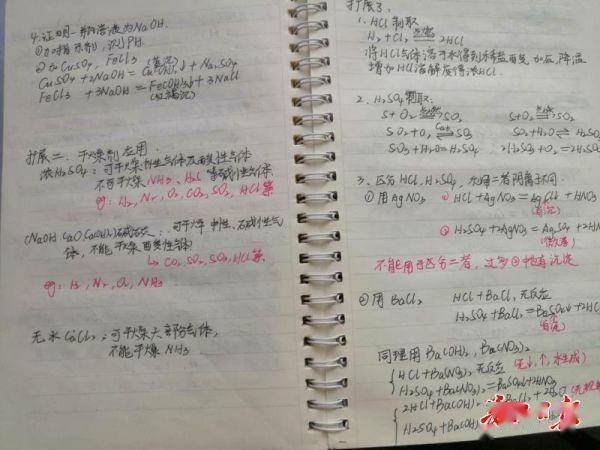 4.证明一种溶液为NaOH.
①加指示剂,测PH.
②加CuSO4、FeCl3
CuSO4+2NaOH=Cu(OH)2↓+Na2SO4
FeCl3+3NaOH=Fe(OH)3↓+3NaCl
扩展二:干燥剂应用.
浓H2SO4:可干燥中性气体及酸性气体
不可干燥NH3、H2S等碱性气体.
例:H2,N2,O2,CO2,SO2,HCl等
(NaOH.CaO.Ca(OH)2)碱 :可干燥中性、碱性气
体,不能干燥酸性
CO2,SO2,SO3,HCl等
例:H2,N2,O2,NH3
无水CaCl2:可干燥大部份气体,
不能干燥NH3
扩展3.
1.HCl制取
H2+Cl2=2HCl
将HCl气体溶于水得到 加压,降温
增加HCl溶解度得浓HCl.
2.H2SO4制取:
S+O2=SO2 S+O2=SO2
SO2+O2=SO3 SO2+H2O⇌H2S
SO3+H2O=H2SO4 2H2SO3+O2=2H2S
3.区分HCl,H2SO4, 二者阴离子不同.
①用AgNO3 ①HCl+AgNO3=AgCl↓+HNO3
(白沉)
②H2SO4+AgNO3=Ag2SO4+2H
(微溶)
不能用于区分二者, ②也有沉淀
②用BaCl2 HCl+BaCl2无反应
H2SO4+BaCl2=BaSO4↓+2HCl
(白沉)
同理用Ba(OH)2,Ba(NO3)2
HCl+Ba(NO3)2无反应(无↓,↑,水生成)
H2SO4+Ba(NO3)2=BaSO4↓+2HNO3
2HCl+Ba(OH)2=BaCl2+2H2O
H2SO4+Ba(OH)